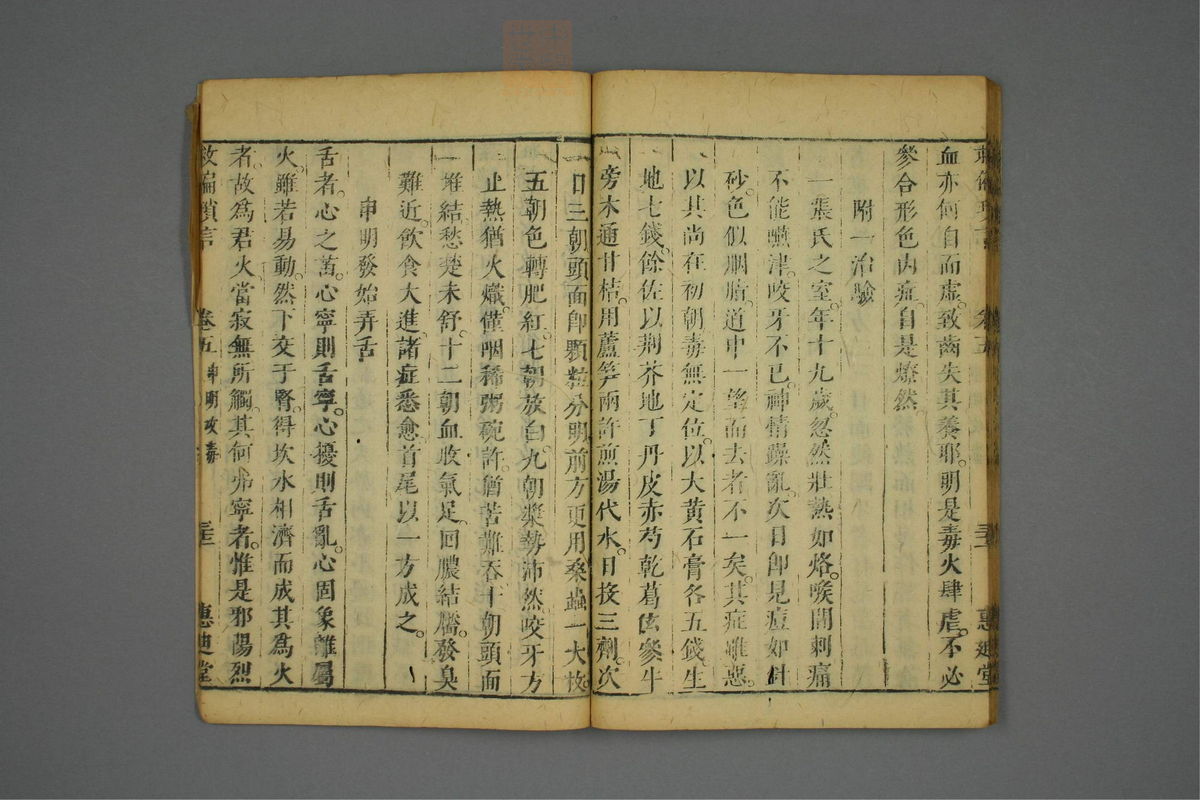 血亦何自而虛。致齒失其養耶。明是毒火肆虐。不必
參合形色內症。自是燎然。
附一治驗
一張氏之室。年十九歲。忽然壯熱如烙。喉閉刺痛
不能嚥津。咬牙不已。神情躁亂。次日即見痘如針
砂。色似胭脂。道中一望而去者不一矣。其症雖惡。
以其尚在初朝毒無定位。以大黃石膏各五錢生
地七錢。餘佐以荆芥地丁丹皮赤芍乾葛玄參牛
旁木通甘桔。用蘆笋兩許煎湯代水。日投三劑。次
日三朝頭面即顆粒分明前方更用桑蟲一大枚。
五朝色轉肥紅。七朝放白。九朝漿勢沛然。咬牙方
止熱猶火熾。僅嚥稀粥碗許。猶苦難吞。十朝頭面
堆結愁楚未舒。十二朝血收氣足。回膿結靨。發臭
難近。飲食大進。諸症悉愈。首尾以一方成之。
申明發始弄舌
舌者。心之苗。心寧則舌寧。心擾則舌亂。心固象離屬
火。雖若易動。然下交于腎。得坎水相濟而成其為火
者。故為君火。當寂無所觸。其何弗寧者。惟是邪陽烈
救偏瑣言 卷五 申明攻毒 三三 惠迪堂